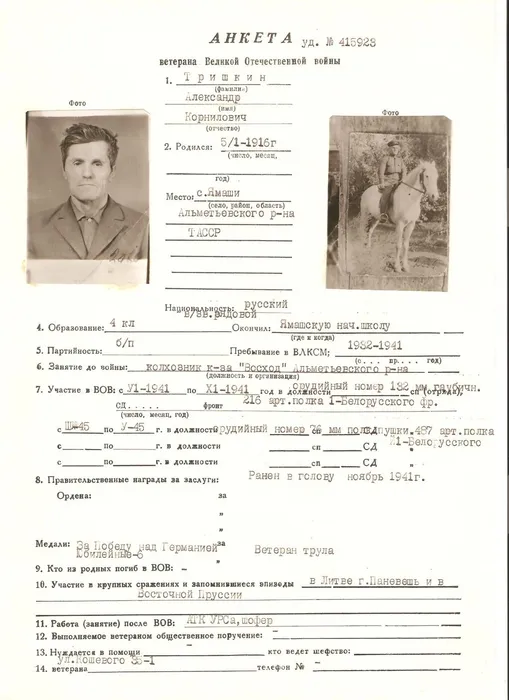 АНКЕТА уд. № 415923
ветерана Великой Отечественной войны
1. Тришкин
(фамилия)
Александр
(имя)
Корнилович
(отчество)
2. Родился: 5/1-1916г
(число, месяц,
год)
Место: с.Ямаши
(село, район, область)
Альметьевского р-на
ТАССР
Фото
Фото
Национальность: русский
В/зв. рядовой
4. Образование: 4 кл Окончил: Ямашскую нач.школу
(где и когда)
5. Партийность: б/п Пребывание в ВЛКСМ: 1932-1941
(с... пр... год)
6. Занятие до войны: колхозник к-за "Восход" Альметьевского р-на
(должность и организация)
7. Участие в ВОВ: с У1-1941 по Х1-1941 год в должности орудийный номер 132 мм гаубичн.
сп (отряда),
СД фронт 216 арт.полка 1-Белорусского фр.
(число, месяц, год)
с Ш-45 по У-45 г. в должности орудийный номер 76 мм полк. пушки.487 арт.полка
с по г. в должности сп СД 1-Белорусского
с по г. в должности сп СД "
8. Правительственные награды за заслуги: Ранен в голову ноябрь 1941г.
Ордена: за
"
"
Медали: За Победу над Германией за
Юбилейные-6 Ветеран труда
9. Кто из родных погиб в ВОВ: -
10. Участие в крупных сражениях и запомнившиеся эпизоды в Литве г.Паневешь и в
Восточной Пруссии
11. Работа (занятие) после ВОВ: АТК УРСа, шофер
12. Выполняемое ветераном общественное поручение:
13. Нуждается в помощи кто ведет шефство:
ул.Кошевого 38-1
14. ветерана телефон №